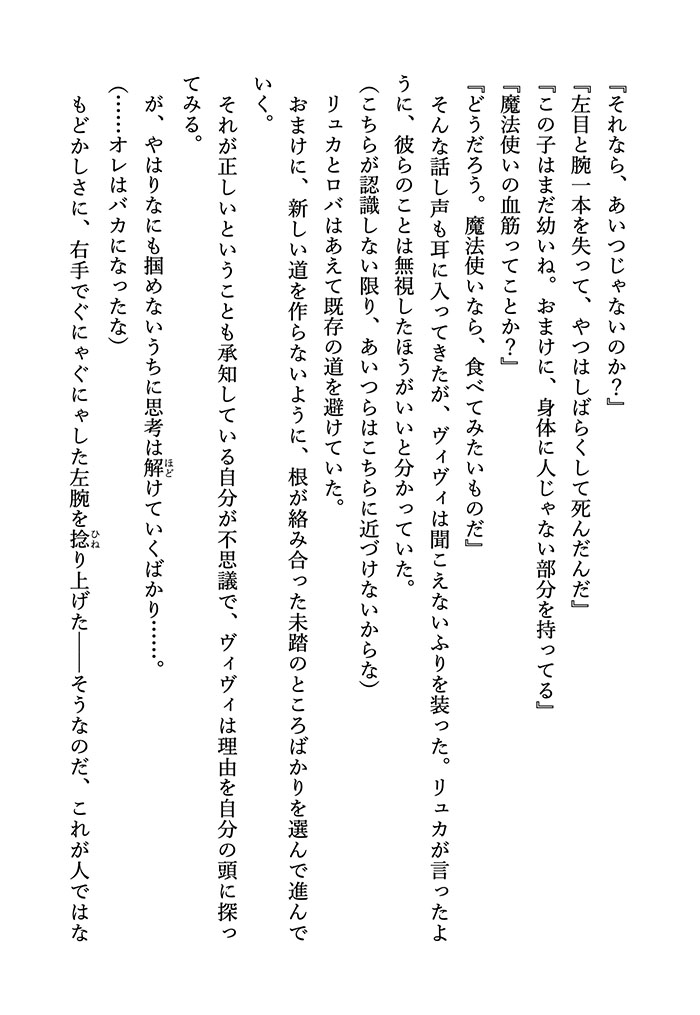 『それなら、あいつじゃないのか？』
『左目と腕一本を失って、やつはしばらくして死んだんだ』
『この子はまだ幼いね。おまけに、身体に人じゃない部分を持ってる』
『魔法使いの血筋ってことか？』
『どうだろう。魔法使いなら、食べてみたいものだ』
　そんな話し声も耳に入ってきたが、ヴィヴィは聞こえないふりを装った。リュカが言ったよ
うに、彼らのことは無視したほうがいいと分かっていた。
（こちらが認識しない限り、あいつらはこちらに近づけないからな）
　リュカとロバはあえて既存の道を避けていた。
　おまけに、新しい道を作らないように、根が絡み合った未踏のところばかりを選んで進んで
いく。
　それが正しいということも承知している自分が不思議で、ヴィヴィは理由を自分の頭に探っ
てみる。
　が、やはりなにも掴めないうちに思考は解ほどけていくばかり……。
（……オレはバカになったな）
　もどかしさに、右手でぐにゃぐにゃした左腕を捻ひねり上げた――そうなのだ、これが人ではな